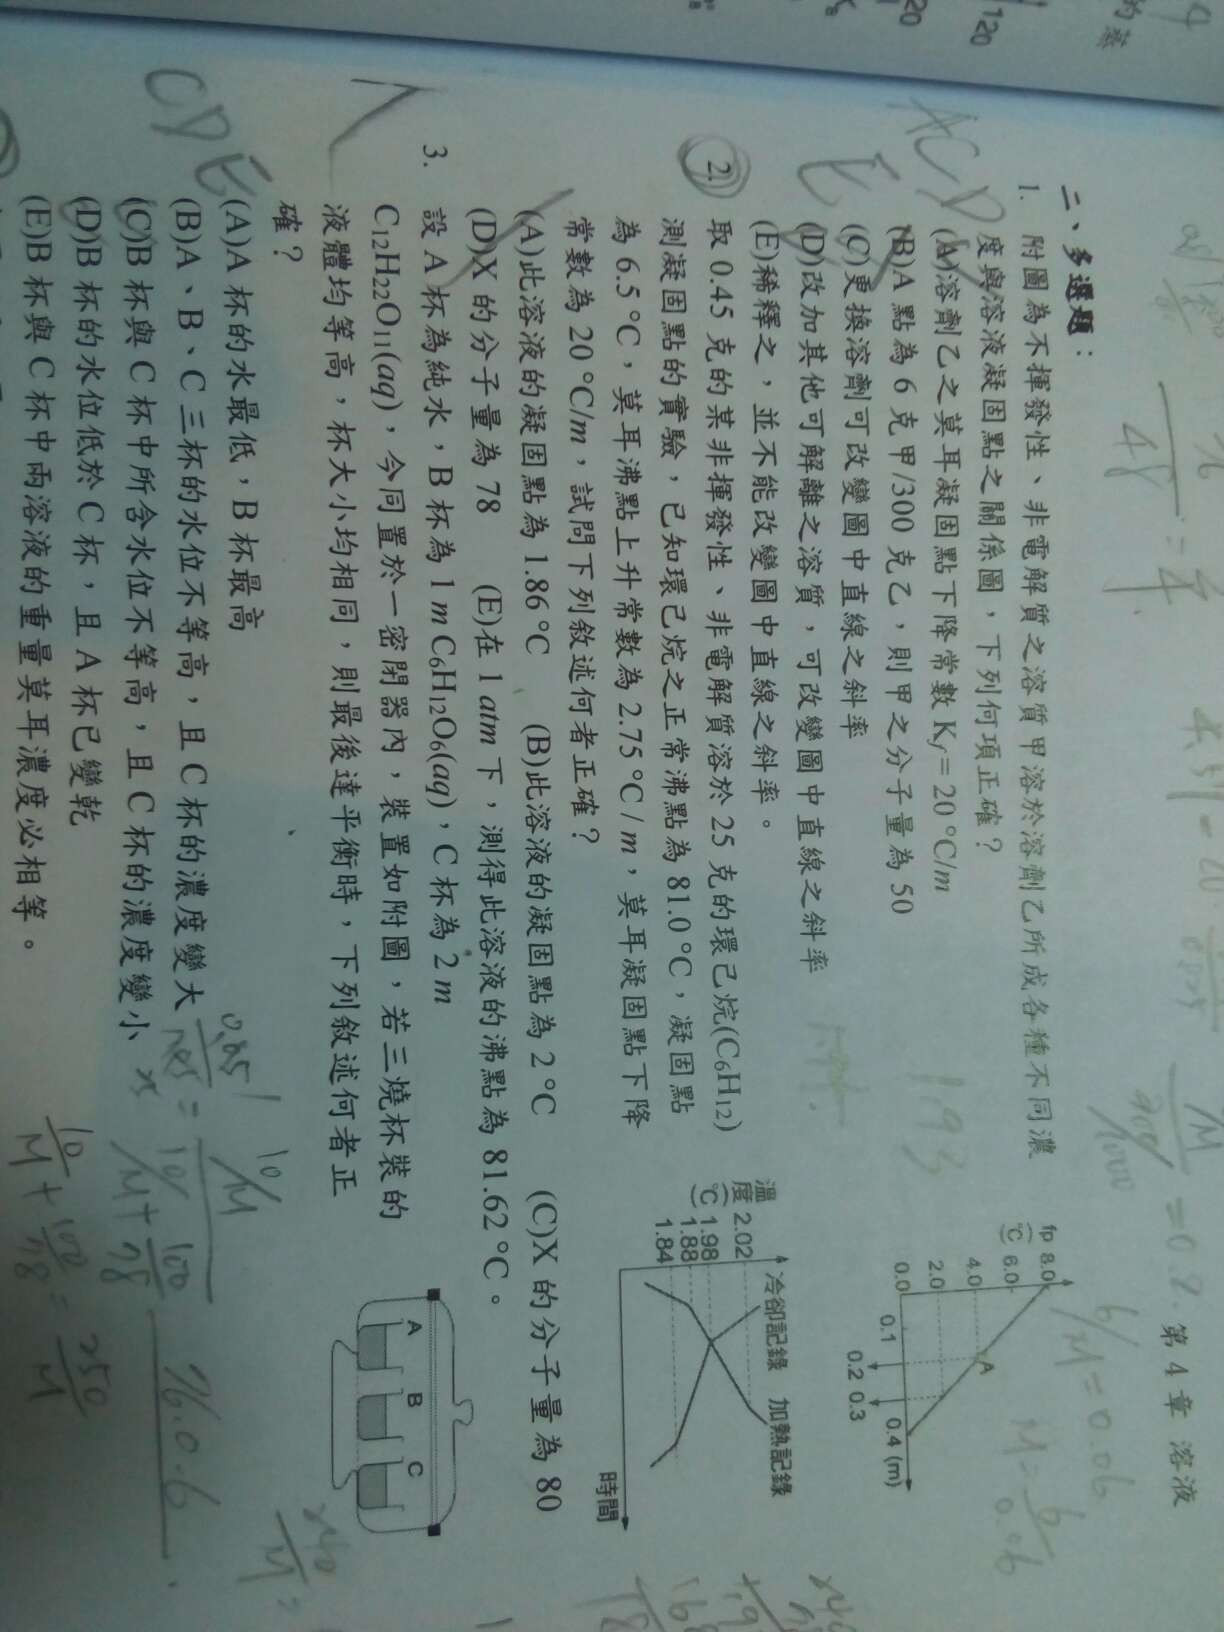 第 4 章 溶液
二、多選題：
1. 附圖為不揮發性、非電解質之溶質甲溶於溶劑乙所成各種不同濃
度與溶液凝固點之關係圖，下列何項正確？
(A)溶劑乙之莫耳凝固點下降常數 Kf = 20 °C/m
(B)A 點為 6 克甲/300 克乙，則甲之分子量為 50
(C)更換溶劑可改變圖中直線之斜率
(D)改加其他可解離之溶質，可改變圖中直線之斜率
(E)稀釋之，並不能改變圖中直線之斜率。
fp
(°C)
8.0
6.0
4.0
2.0
0.0
A
0.1 0.2 0.3 0.4 (m)
ACD
E
2. 取 0.45 克的某非揮發性、非電解質溶於 25 克的環己烷(C6H12)
測凝固點的實驗，已知環己烷之正常沸點為 81.0 °C，凝固點
為 6.5 °C，莫耳沸點上升常數為 2.75 °C / m，莫耳凝固點下降
常數為 20 °C/m，試問下列敘述何者正確？
(A)此溶液的凝固點為 1.86 °C (B)此溶液的凝固點為 2 °C (C)X 的分子量為 80
(D)X 的分子量為 78 (E)在 1 atm 下，測得此溶液的沸點為 81.62 °C。
溫度(°C)
2.02
1.98
1.88
1.84
冷卻記錄 加熱記錄
時間
3. 設 A 杯為純水，B 杯為 1 m C6H12O6(aq)，C 杯為 2 m
C12H22O11(aq)，今同置於一密閉器內，裝置如附圖，若三燒杯裝的
液體均等高，杯大小均相同，則最後達平衡時，下列敘述何者正
確？
(A)A 杯的水最低，B 杯最高
(B)A、B、C 三杯的水位不等高，且 C 杯的濃度變大
(C)B 杯與 C 杯中所含水位不等高，且 C 杯的濃度變小
(D)B 杯的水位低於 C 杯，且 A 杯已變乾
(E)B 杯與 C 杯中兩溶液的重量莫耳濃度必相等。
A B C
CD
E
1.93